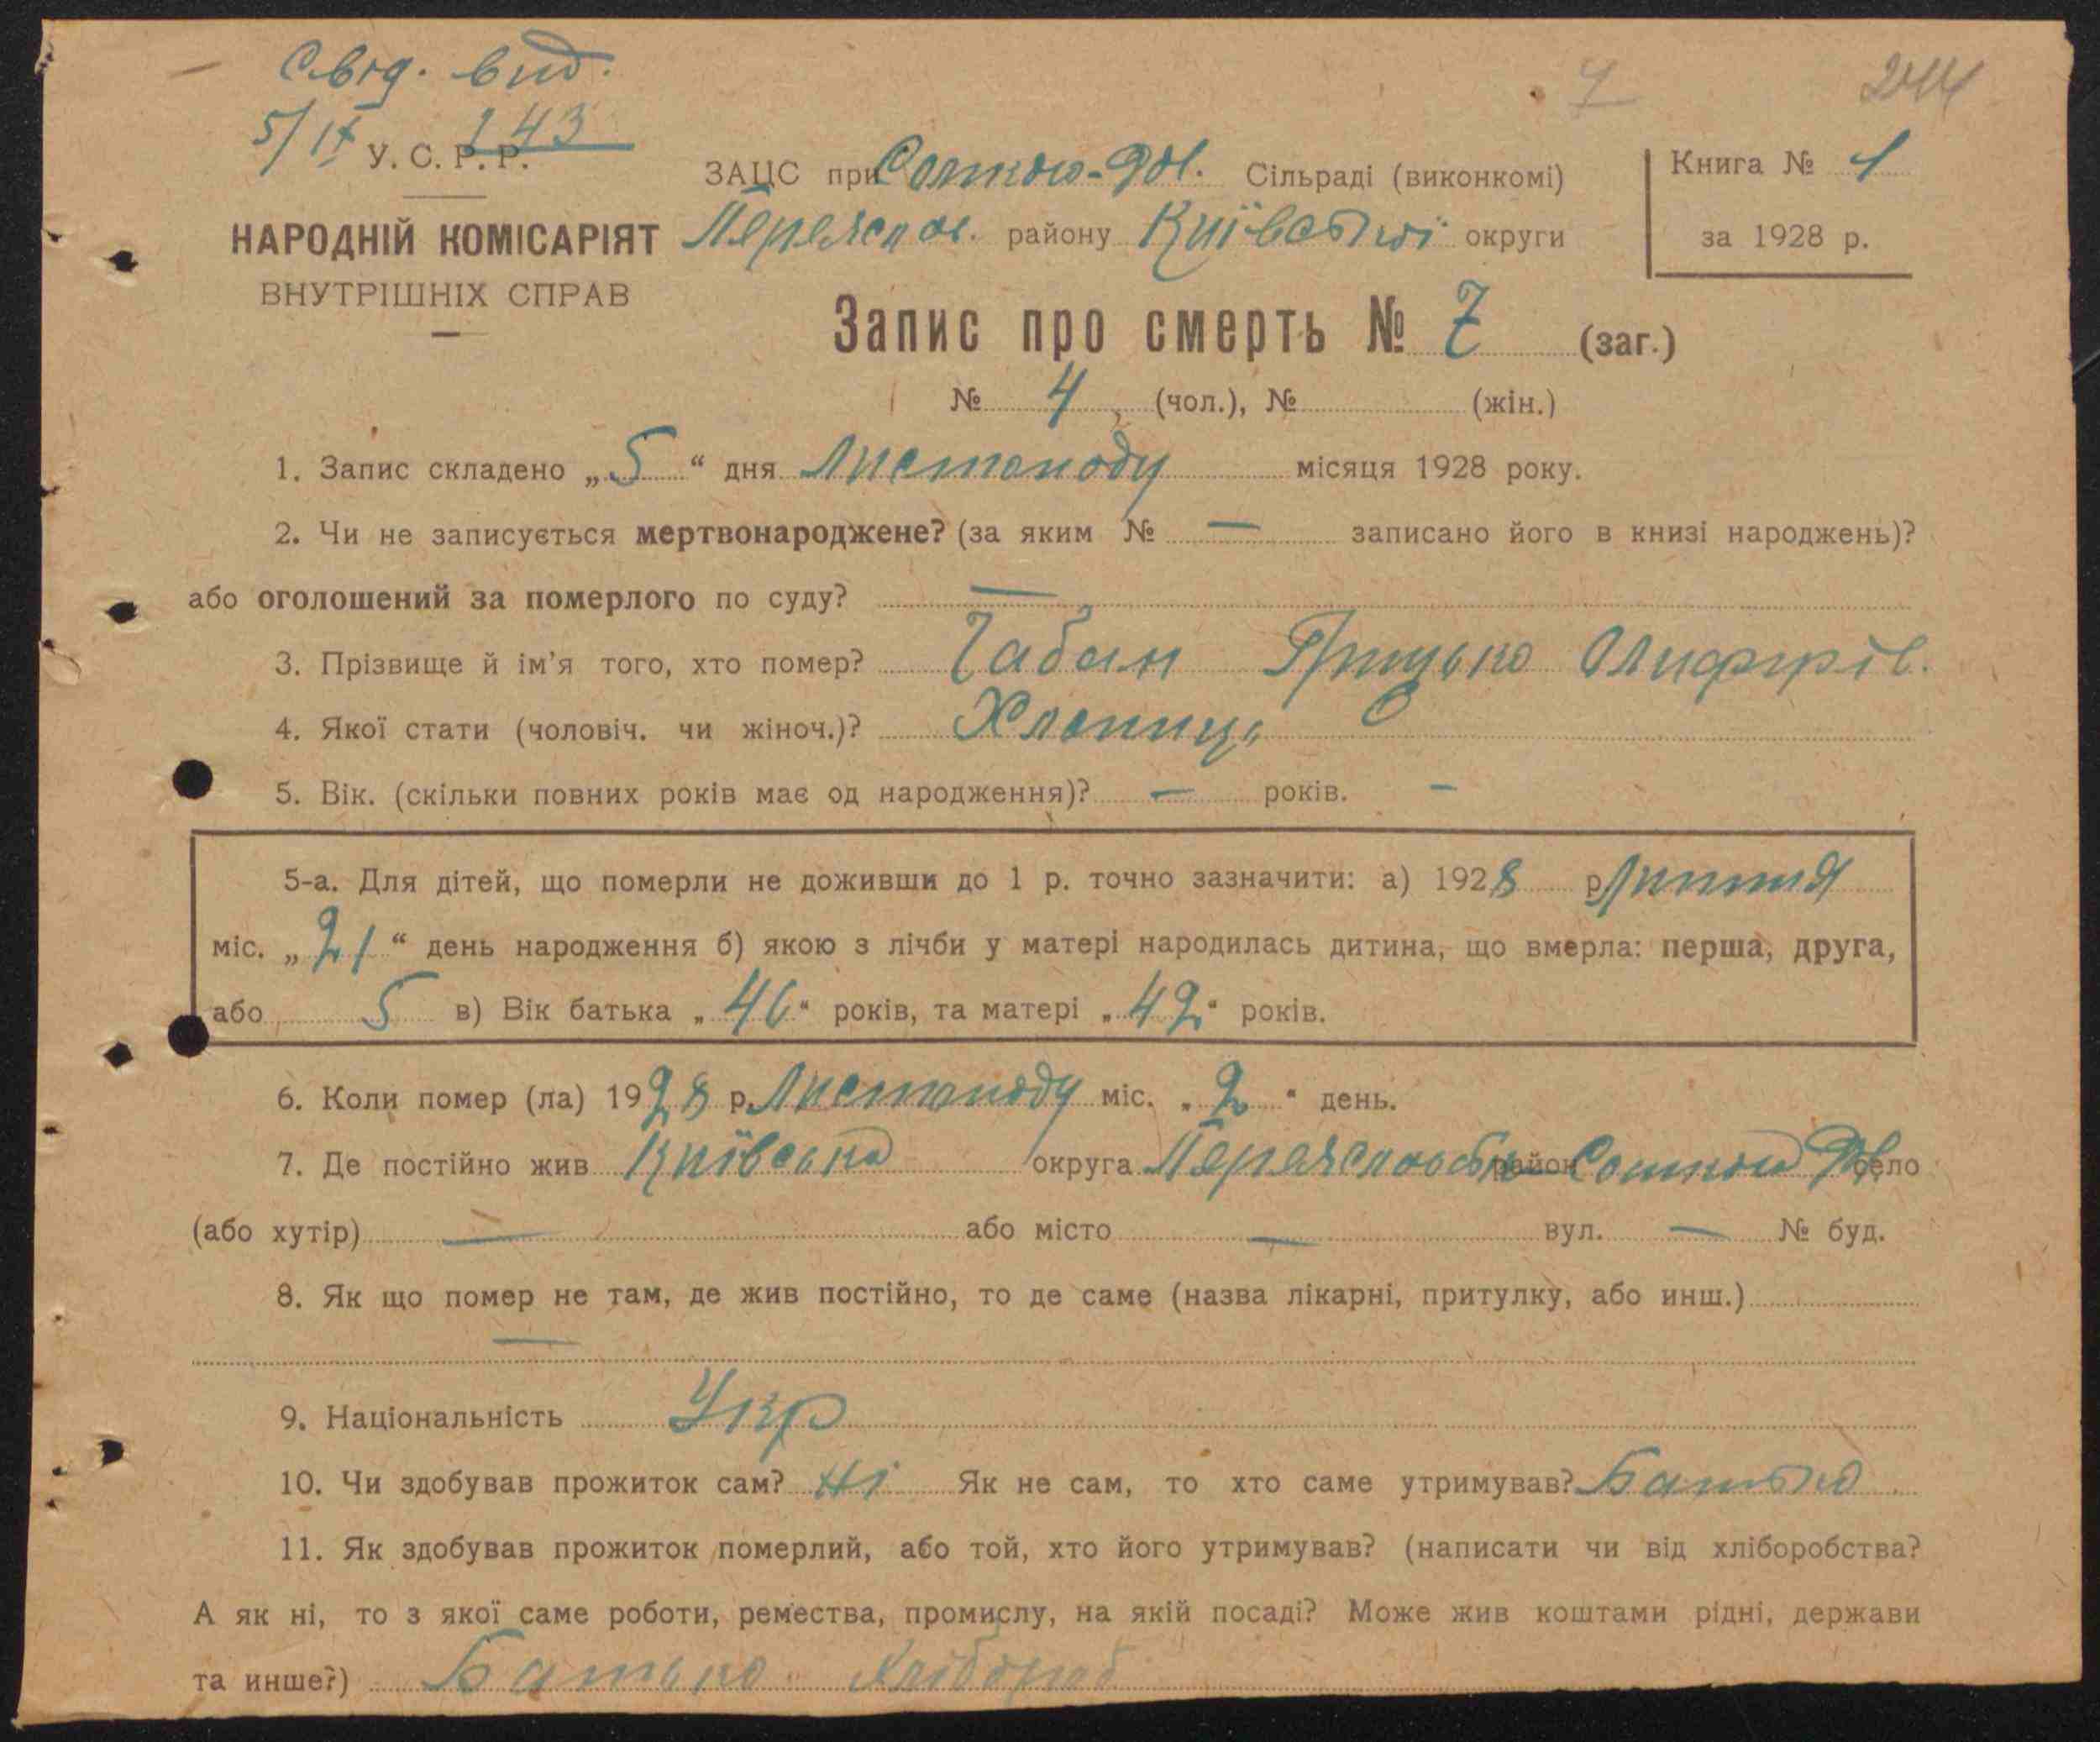 Свід. вид.
5/IX 143
7 244
У. С. Р. Р.
НАРОДНІЙ КОМІСАРІЯТ
ВНУТРІШНІХ СПРАВ
ЗАЦС при Сільраді (виконкомі)
Переяслов. району Київської округи
Книга № 1
за 1928 р.
Запис про смерть № 7 (заг.)
№ 4, (чол.), № (жін.)
1. Запис складено „ 5 “ дня Листопаду місяця 1928 року.
2. Чи не записується мертвонароджене? (за яким № — записано його в книзі народжень)?
або оголошений за померлого по суду? —
3. Прізвище й ім’я того, хто помер? Чабан Грицько Олифірів.
4. Якої стати (чоловіч. чи жіноч.)? Хлопиць
5. Вік. (скільки повних років має од народження)? — років. —
5-а. Для дітей, що померли не доживши до 1 р. точно зазначити: а) 1928 р. Липня
міс. „ 21 “ день народження б) якою з лічби у матері народилась дитина, що вмерла: перша, друга,
або 5 в) Вік батька „ 46 “ років, та матері „ 42 “ років.
6. Коли помер (ла) 1928 р. Листопаду міс. „ 2 “ день.
7. Де постійно жив Київська округа район село
(або хутір) — або місто — вул. — № буд.
8. Як що помер не там, де жив постійно, то де саме (назва лікарні, притулку, або инш.)
—
9. Національність Укр
10. Чи здобував прожиток сам? Ні Як не сам, то хто саме утримував? Батько
11. Як здобував прожиток померлий, або той, хто його утримував? (написати чи від хліборобства?
А як ні, то з якої саме роботи, ремества, промислу, на якій посаді? Може жив коштами рідні, держави
та инше?) Батько хлібороб